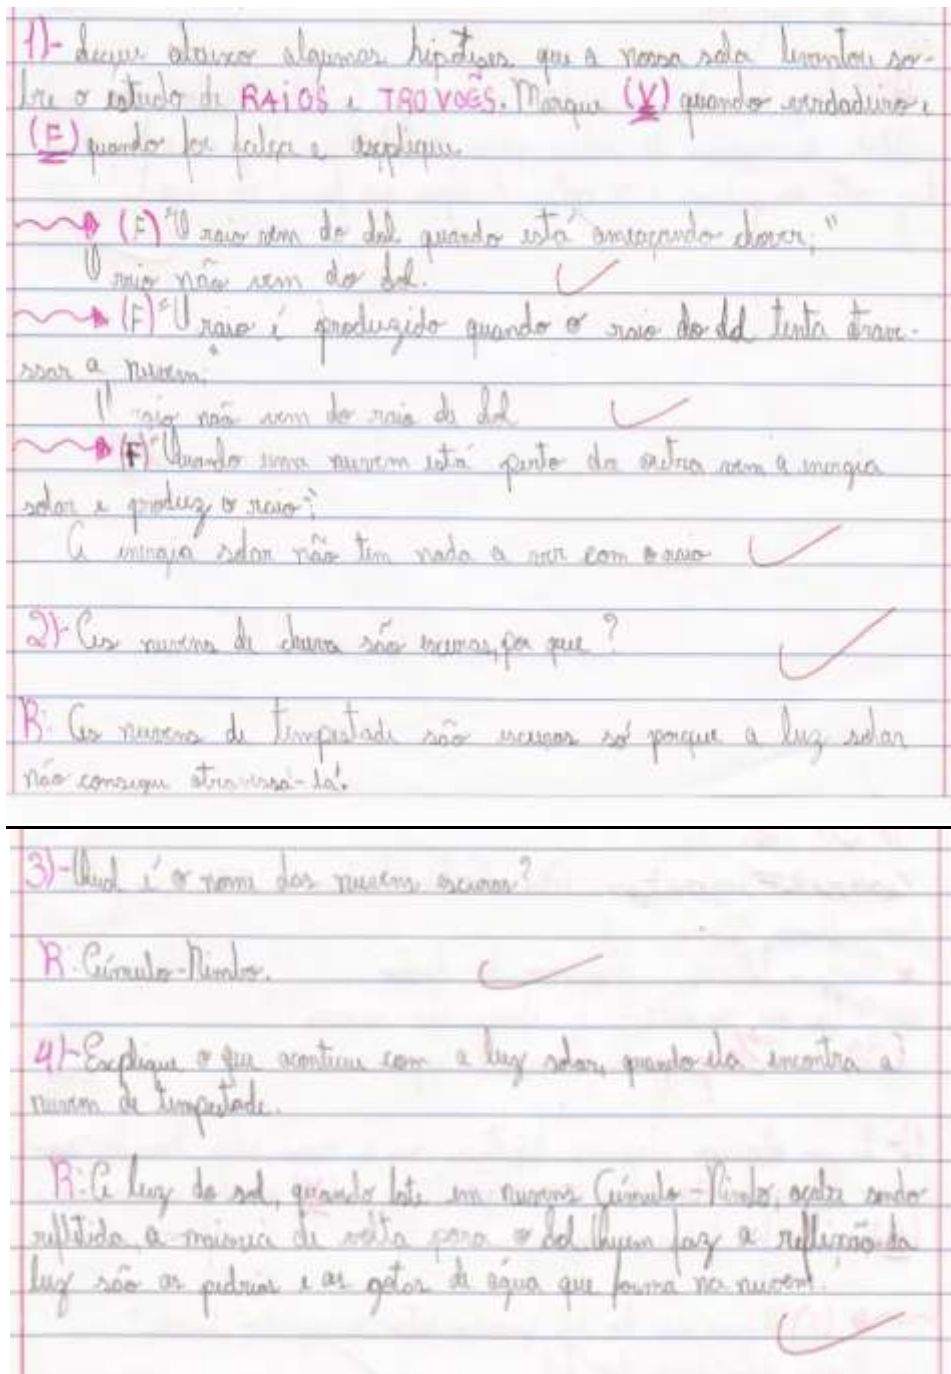 1)- Segue abaixo algumas hipóteses que a nossa sala levantou so-
bre o estudo de RAIOS e TROVÕES. Marque (V) quando verdadeiro e
(F) quando for falça e explique.
(F) "O raio vem do sol quando está ameaçando chover;"
O raio não vem do sol.
(F) "O raio é produzido quando o raio do sol tenta atrave-
ssar a nuvem;"
O raio não vem do raio do sol
(F) "Quando uma nuvem está perto da outra vem a energia
solar e produz o raio;"
A energia solar não tem nada a ver com o raio
2)- As nuvens de chuva são escuras, por que?
R: As nuvens de tempestade são escuras só porque a luz solar
não consegue atravessá-la.
3)- Qual é o nome das nuvens escuras?
R: Cúmulo-Nimbo.
4)- Explique o que acontece com a luz solar, quando ela encontra a
nuvem de tempestade.
R: A luz do sol, quando bate em nuvens Cúmulo-Nimbo, acaba sendo
refletida, a maioria de volta para o sol. Quem faz a reflexão da
luz são as pedrias e as gotas de água que forma na nuvem.